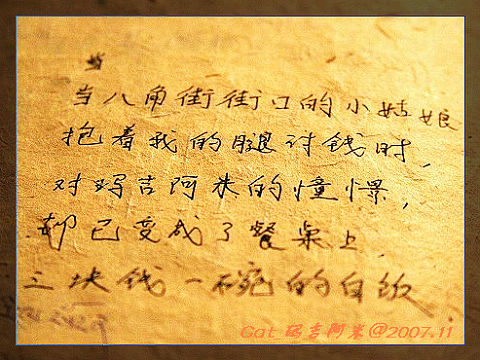 当
当八角街街口的小姑娘
抱着我的腿讨钱时,
对玛吉阿米的憧憬,
都已变成了餐桌上
三块钱一碗的白饭
Cat 玛吉阿米@2007.11